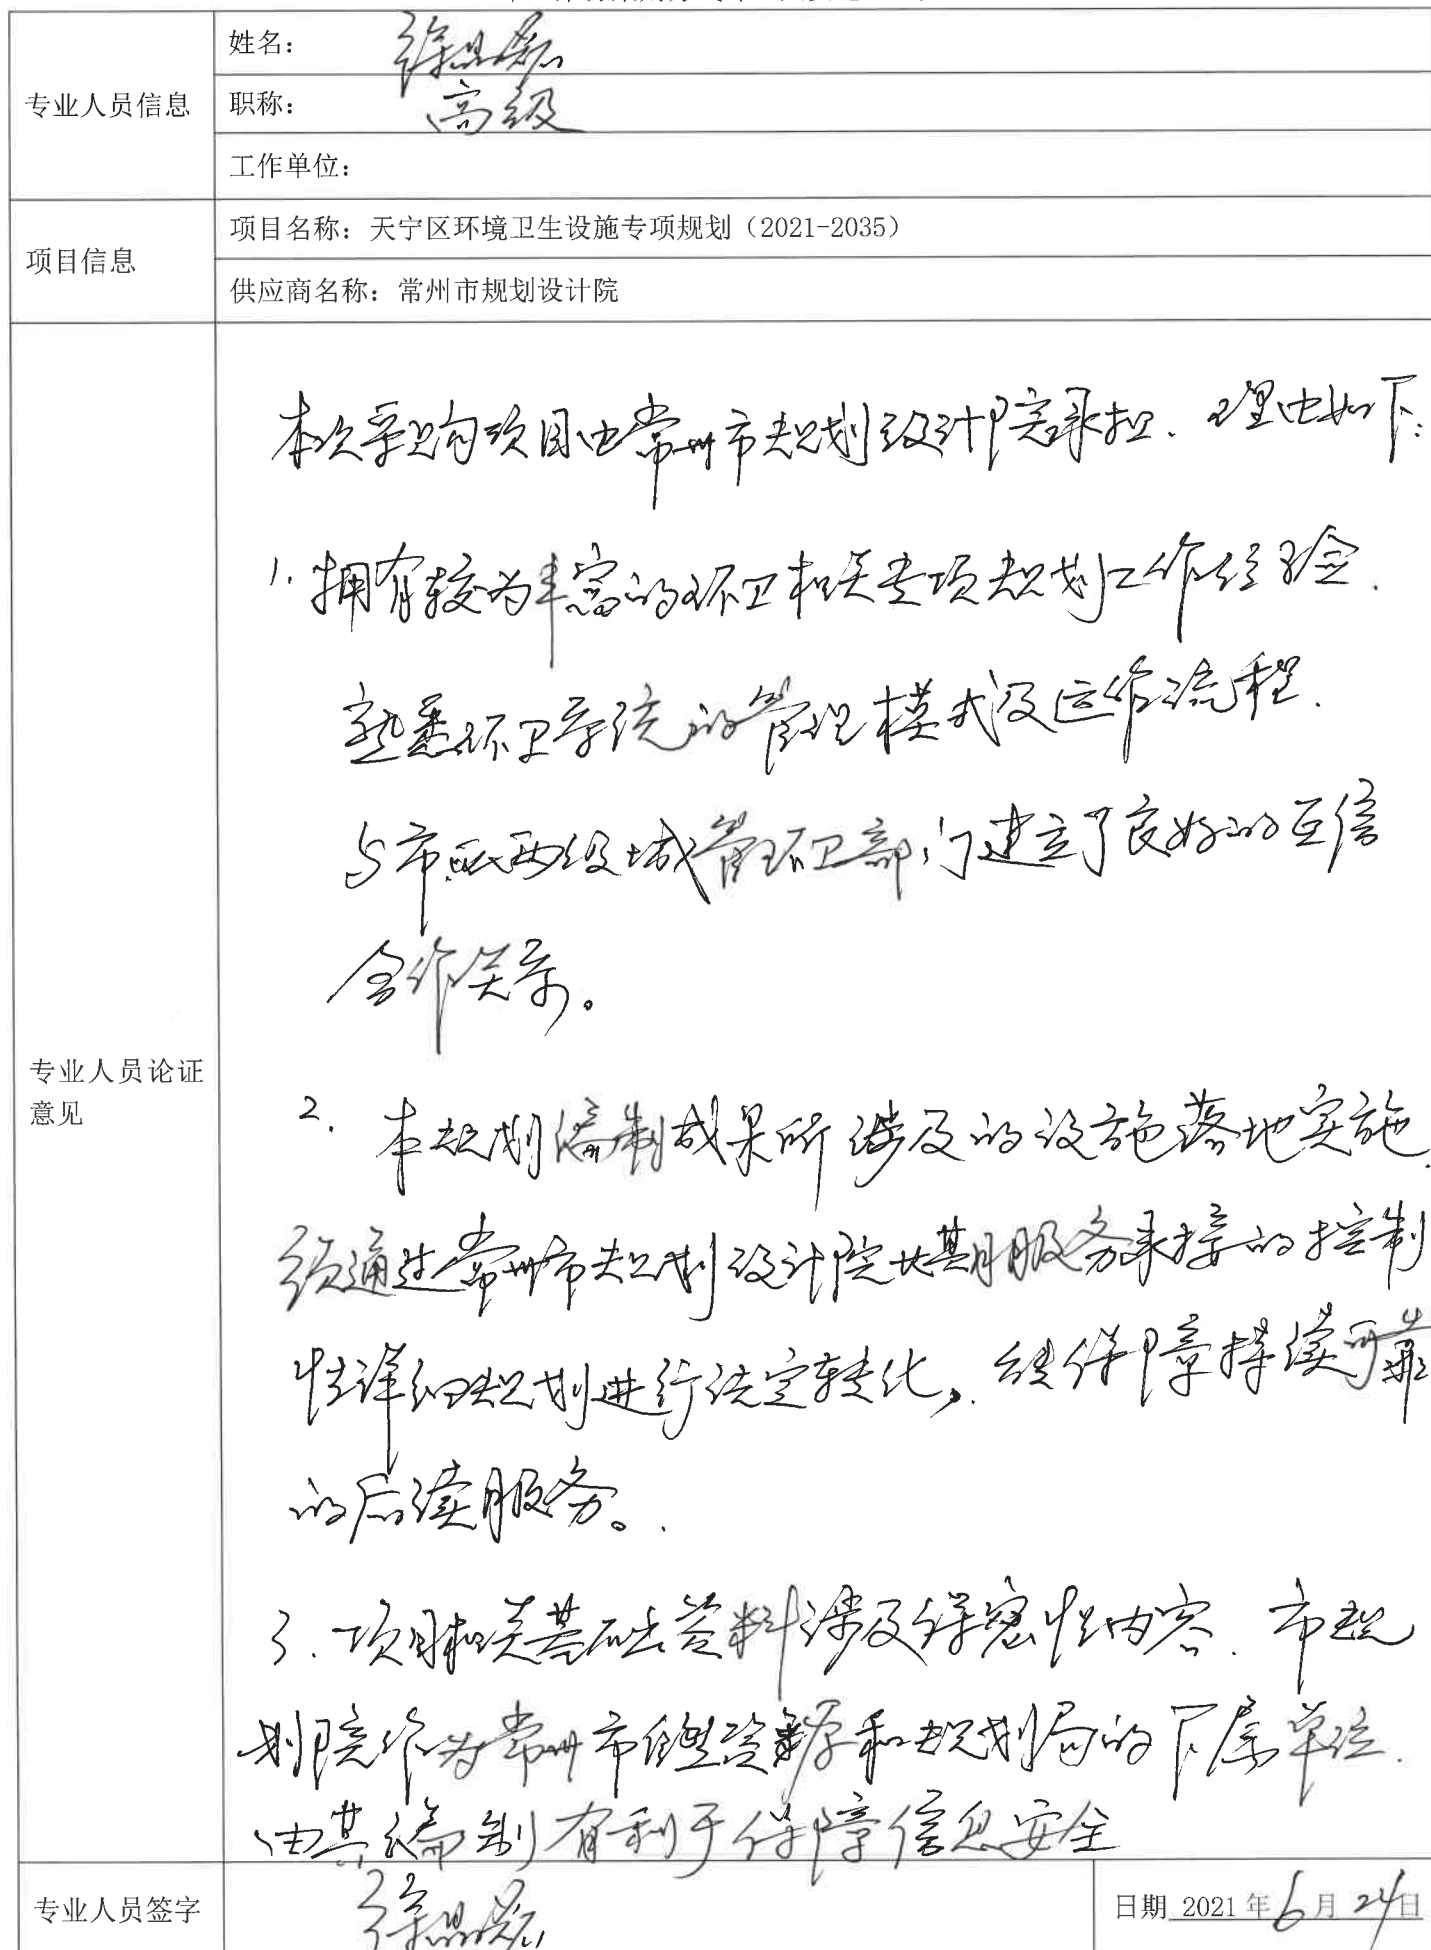 专业人员信息
姓名：
职称：高级
工作单位：
项目信息
项目名称：天宁区环境卫生设施专项规划（2021-2035）
供应商名称：常州市规划设计院
专业人员论证
意见
本次采购项目由常州市规划设计院承担．理由如下：
1. 拥有较为丰富的环卫相关专项规划工作经验．
熟悉环卫系统的管理模式及运作流程．
与市区两级城管环卫部门建立了良好的互信
合作关系。
2. 本规划编制成果所涉及的设施落地实施．
须通过常州市规划设计院长期服务承接的控制
性详细规划进行法定转化，能保障持续可靠
的后续服务。
3. 项目相关基础资料涉及保密性内容．市规
划院作为常州市自然资源和规划局的下属单位．
由其编制有利于保障信息安全
专业人员签字
日期 2021 年 6 月 24 日